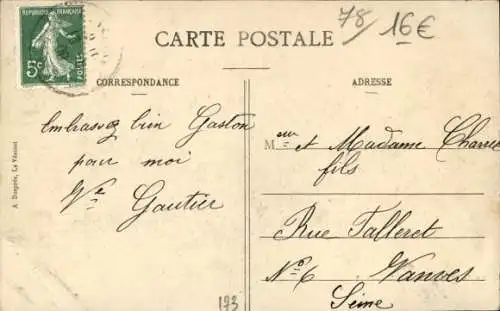 RÉPUBLIQUE FRANÇAISE
5c
POSTES
78/ 16€
CARTE POSTALE
CORRESPONDANCE
ADRESSE
Embrassez bien Gaston
pour moi
Vve Gautier
A Dorgrès, Le Vésinet
Meur et Madame
fils
Rue Talleret
No 6 Vanves
Seine
193